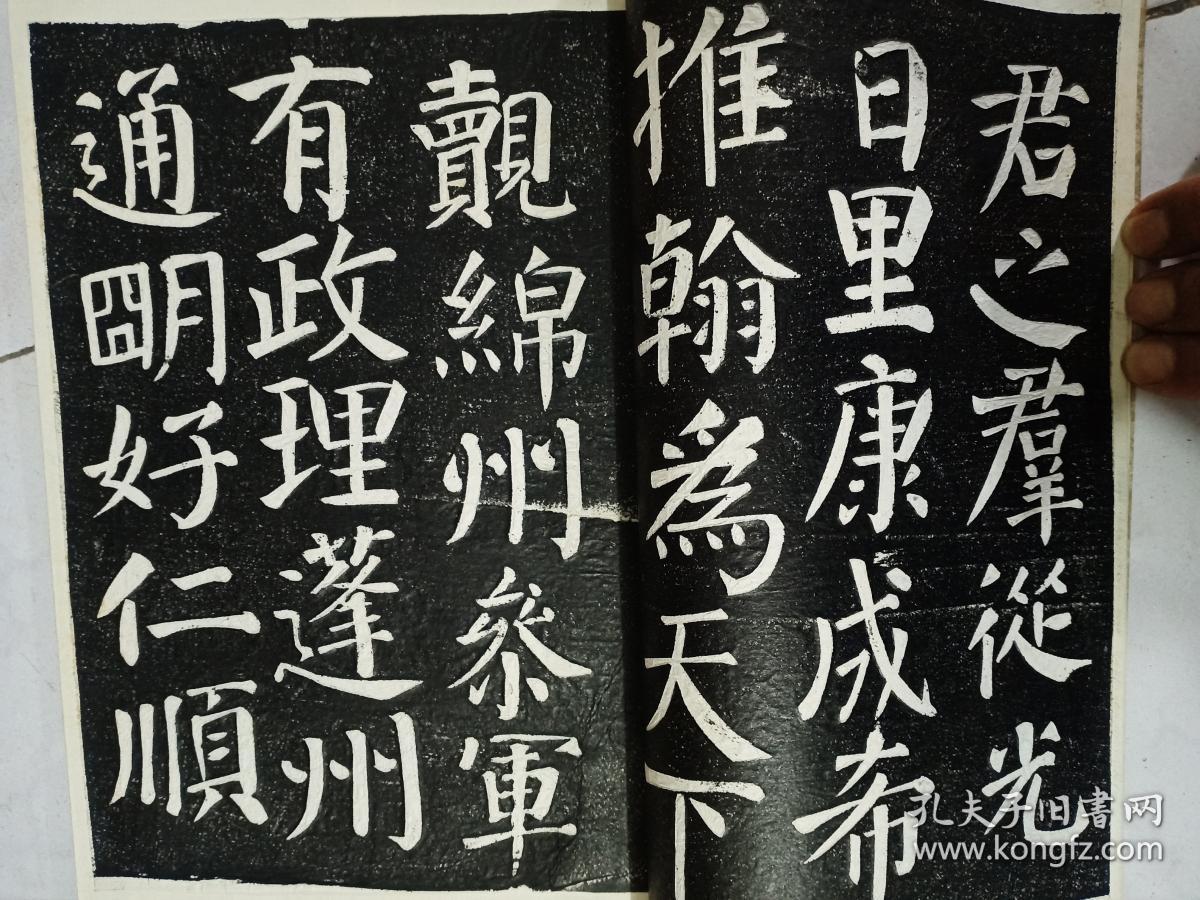 君之羣從光
日里康成希
推翰為天下
覿綿州參軍
有政理蓬州
通明好仁順
孔夫子旧書网
www.kongfz.com